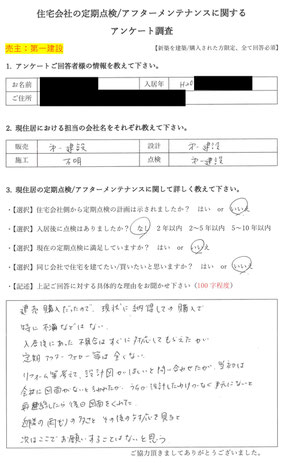 住宅会社の定期点検/アフターメンテナンスに関する
アンケート調査
売主：第一建設
【新築を建築/購入された方限定、全て回答必須】
1. アンケートご回答者様の情報を教えて下さい。
お名前 入居年
ご住所
2. 現住居における担当の会社名をそれぞれ教えて下さい。
販売 第一建設 設計 第一建設
施工 不明 点検 第一建設
3. 現住居の定期点検/アフターメンテナンスに関して詳しく教えて下さい。
・【選択】住宅会社側から定期点検の計画は示されましたか？ はい or いいえ
・【選択】入居後に点検はありましたか？ なし 2年以内 2〜5年以内 5〜10年以内
・【選択】現在の定期点検に満足していますか？ はい or いいえ
・【選択】同じ会社で住宅を建てたい/買いたいと思いますか？ はい or いいえ
・【記述】上記ご回答に対する具体的な理由をお聞かせ下さい（100字程度）
建売購入だったので、現状に納得しての購入で
特に不満などはない。
入居後にあった不具合はすぐに対応してもらえたが
定期アフターフォロー等は全くない。
リフォーム等考えて、設計図がほしいと問い合わせたが、当初は
会社に図面がないと言われたが、
後日図面をくれた。
その後の対応を見ると
次はここでお願いすることはないと思う
ご協力頂きましてありがとうございました。